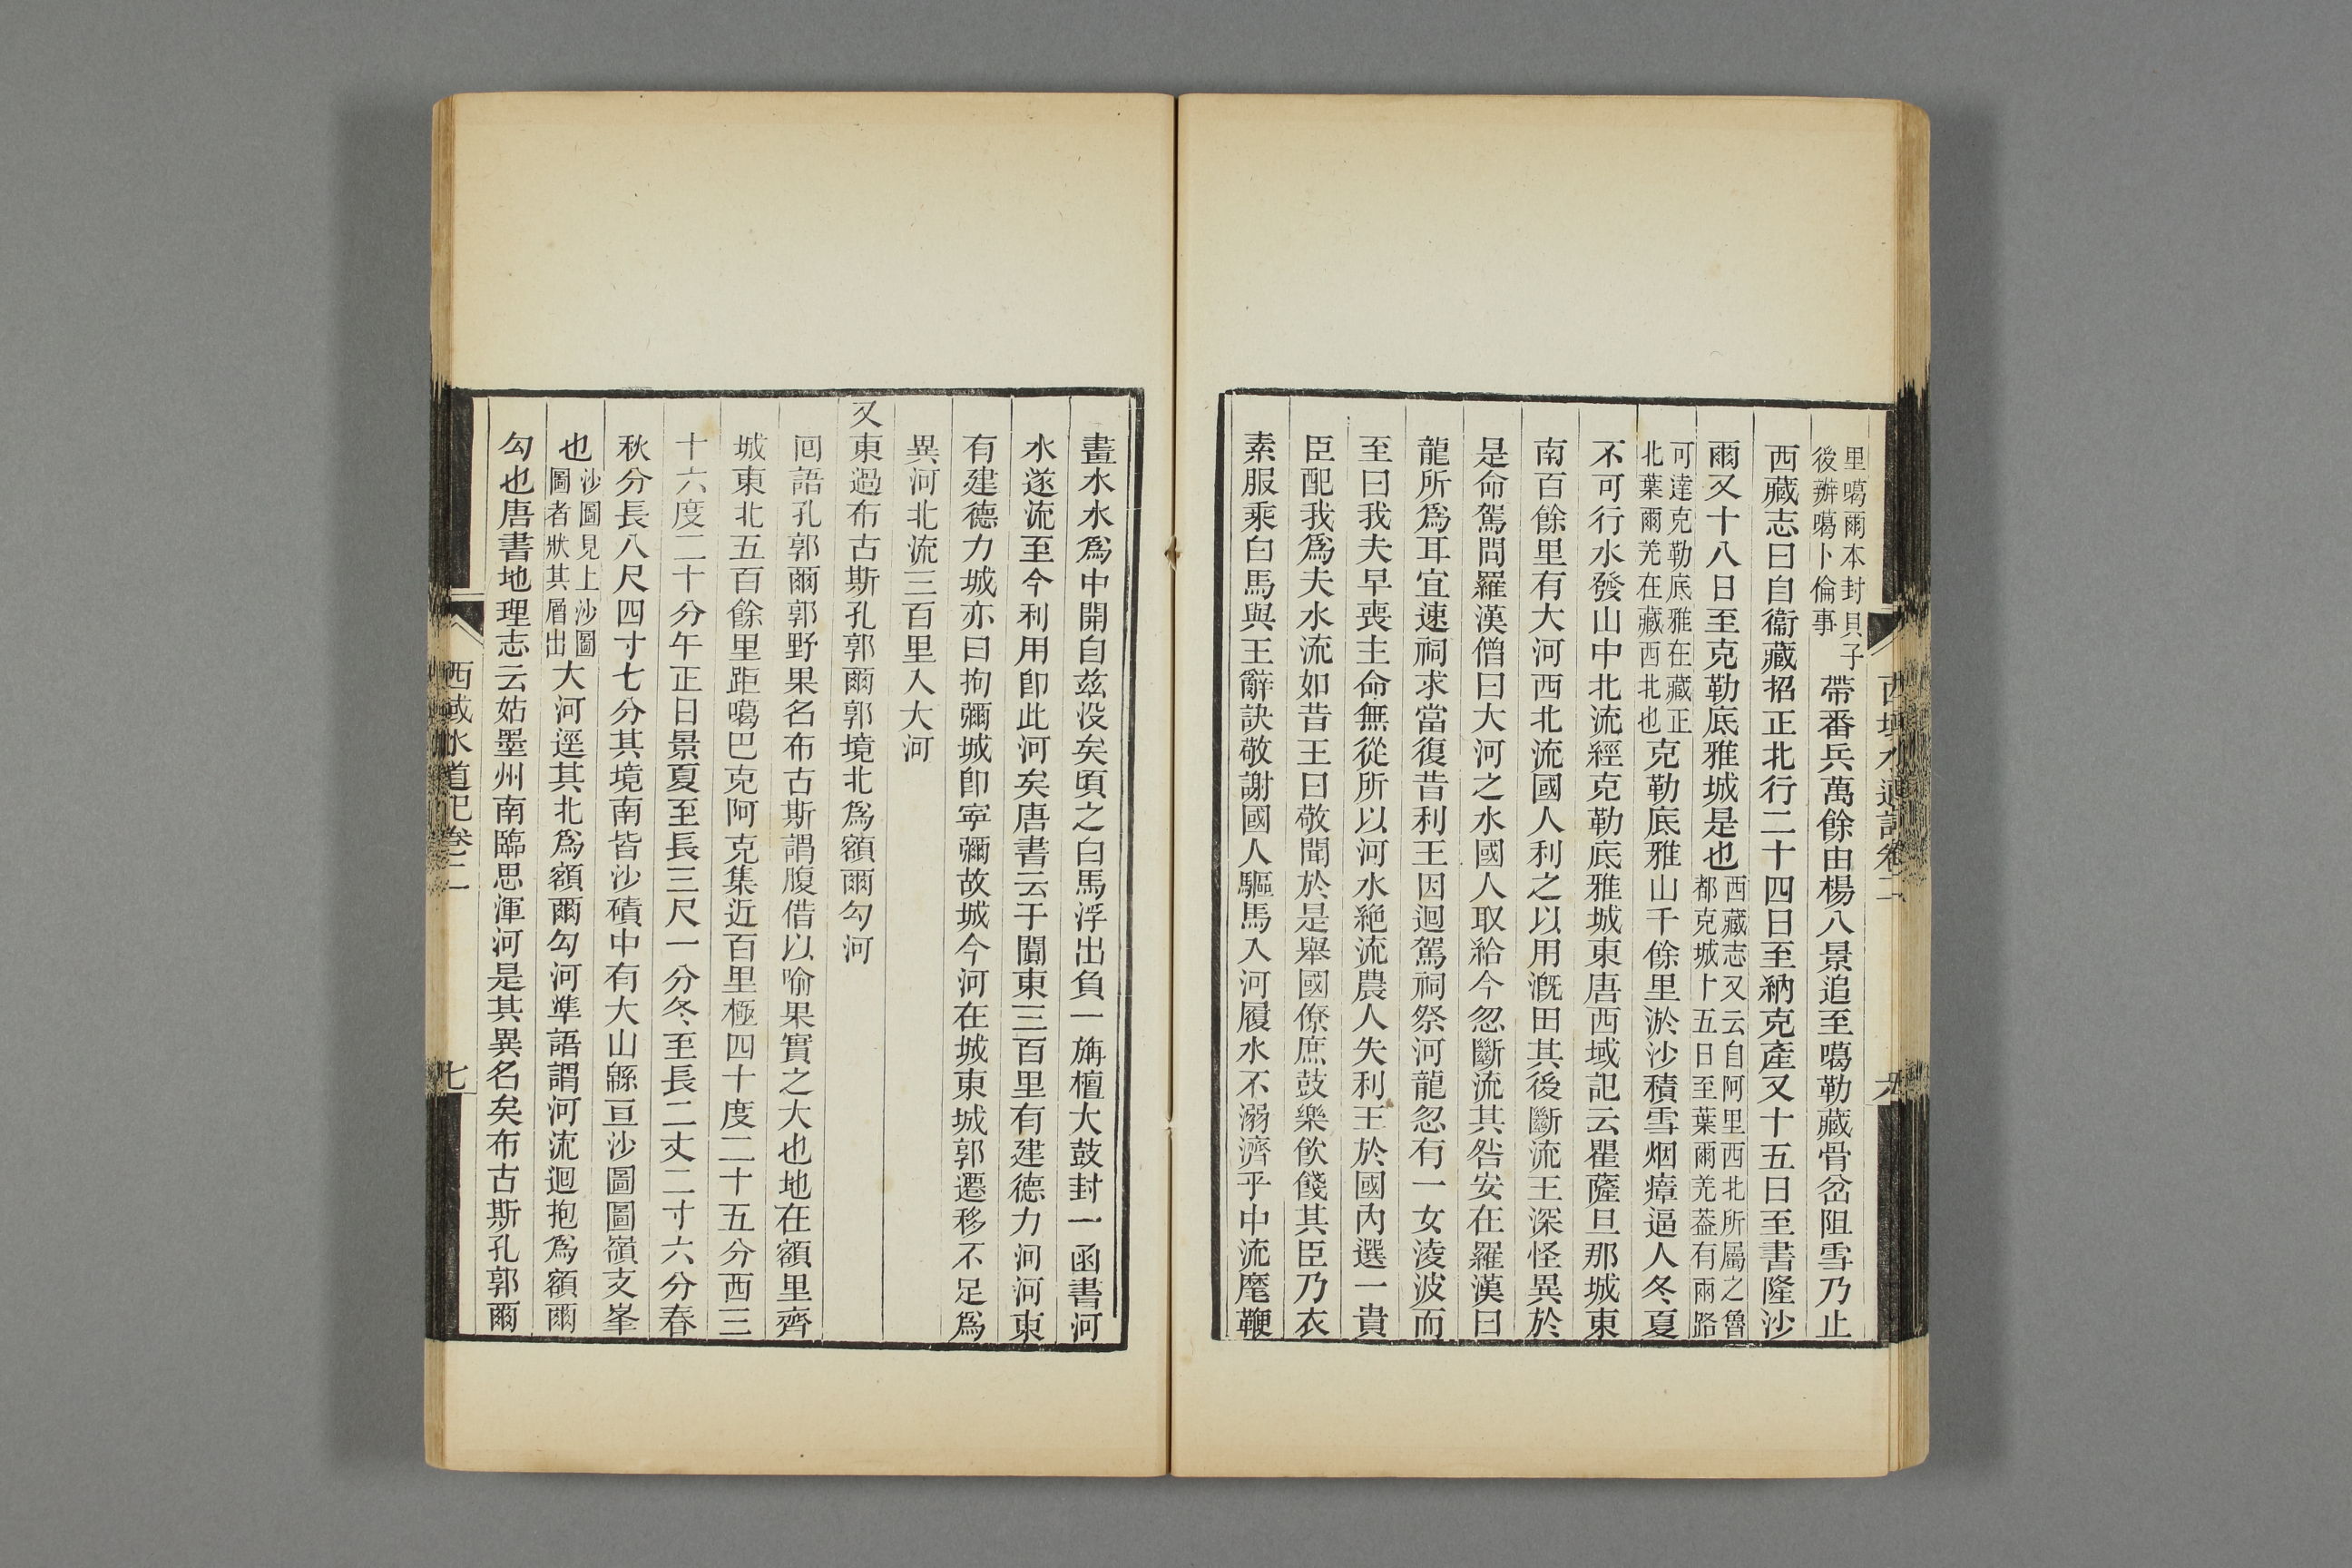 里噶爾本封貝子
後辦噶卜倫事
帶番兵萬餘由楊八景追至噶勒藏骨岔阻雪乃止
西藏志曰自衞藏招正北行二十四日至納克產又十五日至書隆沙
爾又十八日至克勒底雅城是也
西藏志又云自阿里西北所屬之魯
都克城十五日至葉爾羌葢有兩路
可達克勒底雅在藏正
北葉爾羌在藏西北也
克勒底雅山千餘里淤沙積雪烟瘴逼人冬夏
不可行水發山中北流經克勒底雅城東唐西域記云瞿薩旦那城東
南百餘里有大河西北流國人利之以用漑田其後斷流王深怪異於
是命駕問羅漢僧曰大河之水國人取給今忽斷流其咎安在羅漢曰
龍所爲耳宜速祠求當復昔利王因迴駕祠祭河龍忽有一女淩波而
至曰我夫早喪主命無從所以河水絶流農人失利王於國內選一貴
臣配我爲夫水流如昔王曰敬聞於是舉國僚庶鼓樂飲餞其臣乃衣
素服乘白馬與王辭訣敬謝國人驅馬入河履水不溺濟乎中流麾鞭
畫水水爲中開自玆没矣頃之白馬浮出負一旃檀大鼓封一函書河
水遂流至今利用卽此河矣唐書云于闐東三百里有建德力河河東
有建德力城亦曰拘彌城卽寧彌故城今河在城東城郭遷移不足爲
異河北流三百里入大河
又東過布古斯孔郭爾郭境北爲額爾勾河
囘語孔郭爾郭野果名布古斯謂腹借以喻果實之大也地在額里齊
城東北五百餘里距噶巴克阿克集近百里極四十度二十五分西三
十六度二十分午正日景夏至長三尺一分冬至長二丈二寸六分春
秋分長八尺四寸七分其境南皆沙磧中有大山緜亘沙圖圖嶺支峯
也
沙圖見上沙圖
圖者狀其層出
大河逕其北爲額爾勾河準語謂河流迴抱爲額爾
勾也唐書地理志云姑墨州南臨思渾河是其異名矣布古斯孔郭爾
西域水道記卷二
七